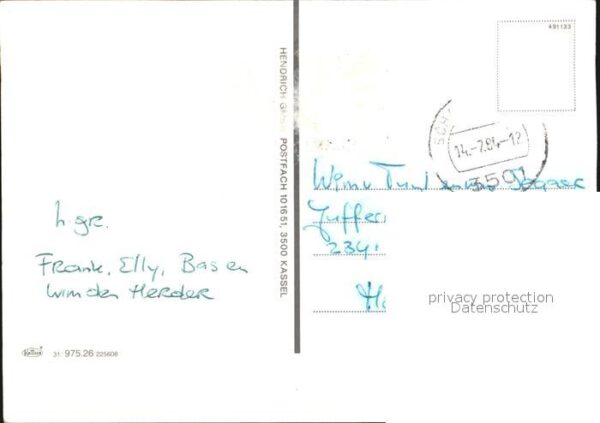 h gr.
Frank, Elly, Bas en
Wim den Herder
31. 975.26 225608
HENDRICH GMBH POSTFACH 101651, 3500 KASSEL
491133
14.-7.84-12
3501
Wim
Juffer
234
privacy protection
Datenschutz